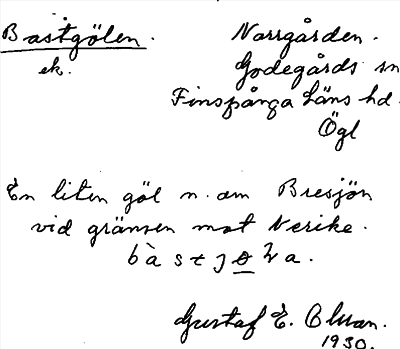 Bastgölen. Norrgården.
ek. Godegårds sn
Finspånga läns hd.
Ögl
En liten göl n. om Bresjön
vid gränsen mot Nerike.
Gustaf E.
1930.